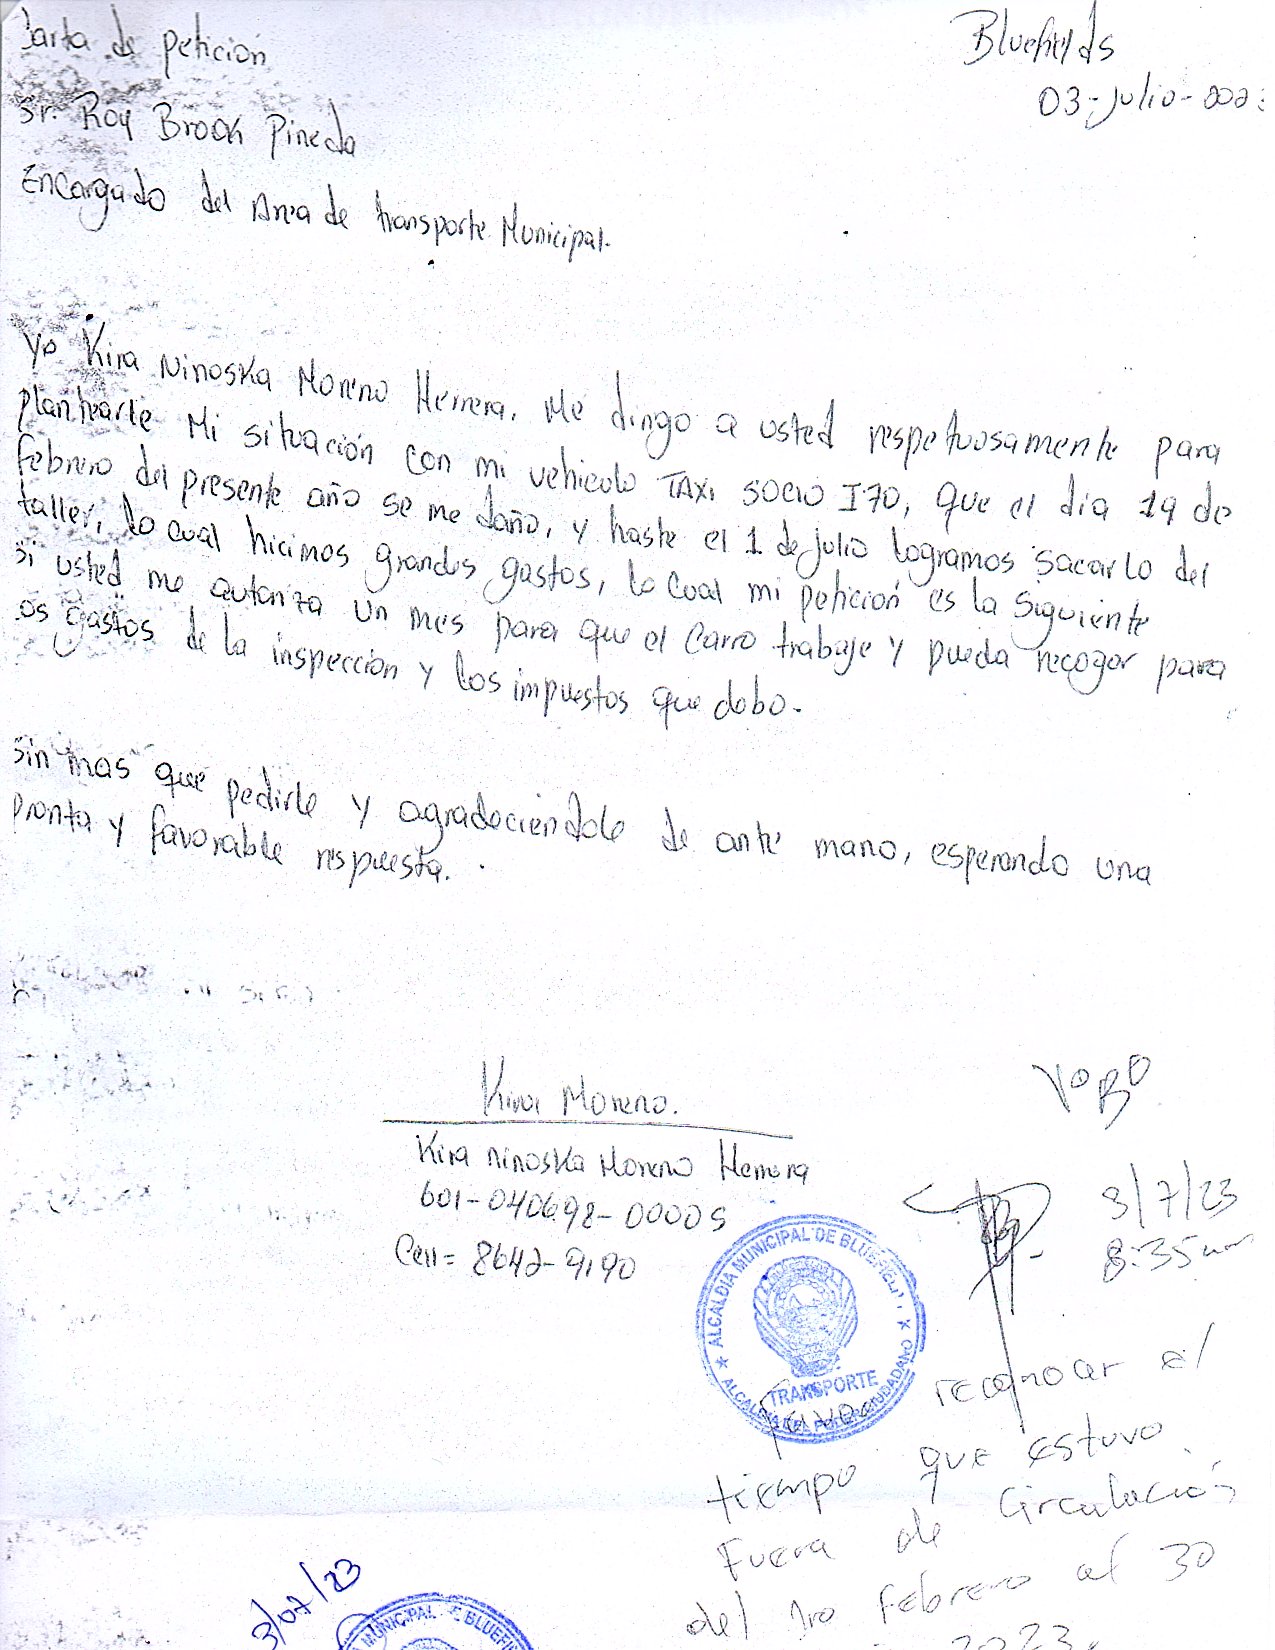 Carta de petición
Bluefields
03-Julio-2023
Sr. Roy Brook Pineda
Encargado del Area de transporte Municipal.
Yo Kira Ninoska Moreno Herrera. Me dirigo a usted respetuosamente para
planthearle Mi situación con mi vehiculo TAXI SOCIO I70, que el dia 19 de
febrero del presente año se me daño, y haste el 1 de julio logramos sacarlo del
taller, lo cual hicimos grandes gastos, lo cual mi petición es la siguiente
si usted me autoriza un mes para que el carro trabaje y pueda recoger para
os gastos de la inspección y los impuestos que debo.
Sin mas que pedirle y agradeciendole de ante mano, esperando una
pronta y favorable respuesta.
Kira Moreno.
Kira Ninoska Moreno Herrera
601-040698-0000S
Cell = 8642-9190
VoBo
3/7/23
8:35am
ALCALDIA MUNICIPAL DE BLUEFIELDS
TRANSPORTE
ALCALDIA DEL PODER CIUDADANO
Favor reconocer el
tiempo que estuvo
Fuera de Circulación
del 1ro febrero al 30
2023.
3/07/23
MUNICIPAL BLUEFI